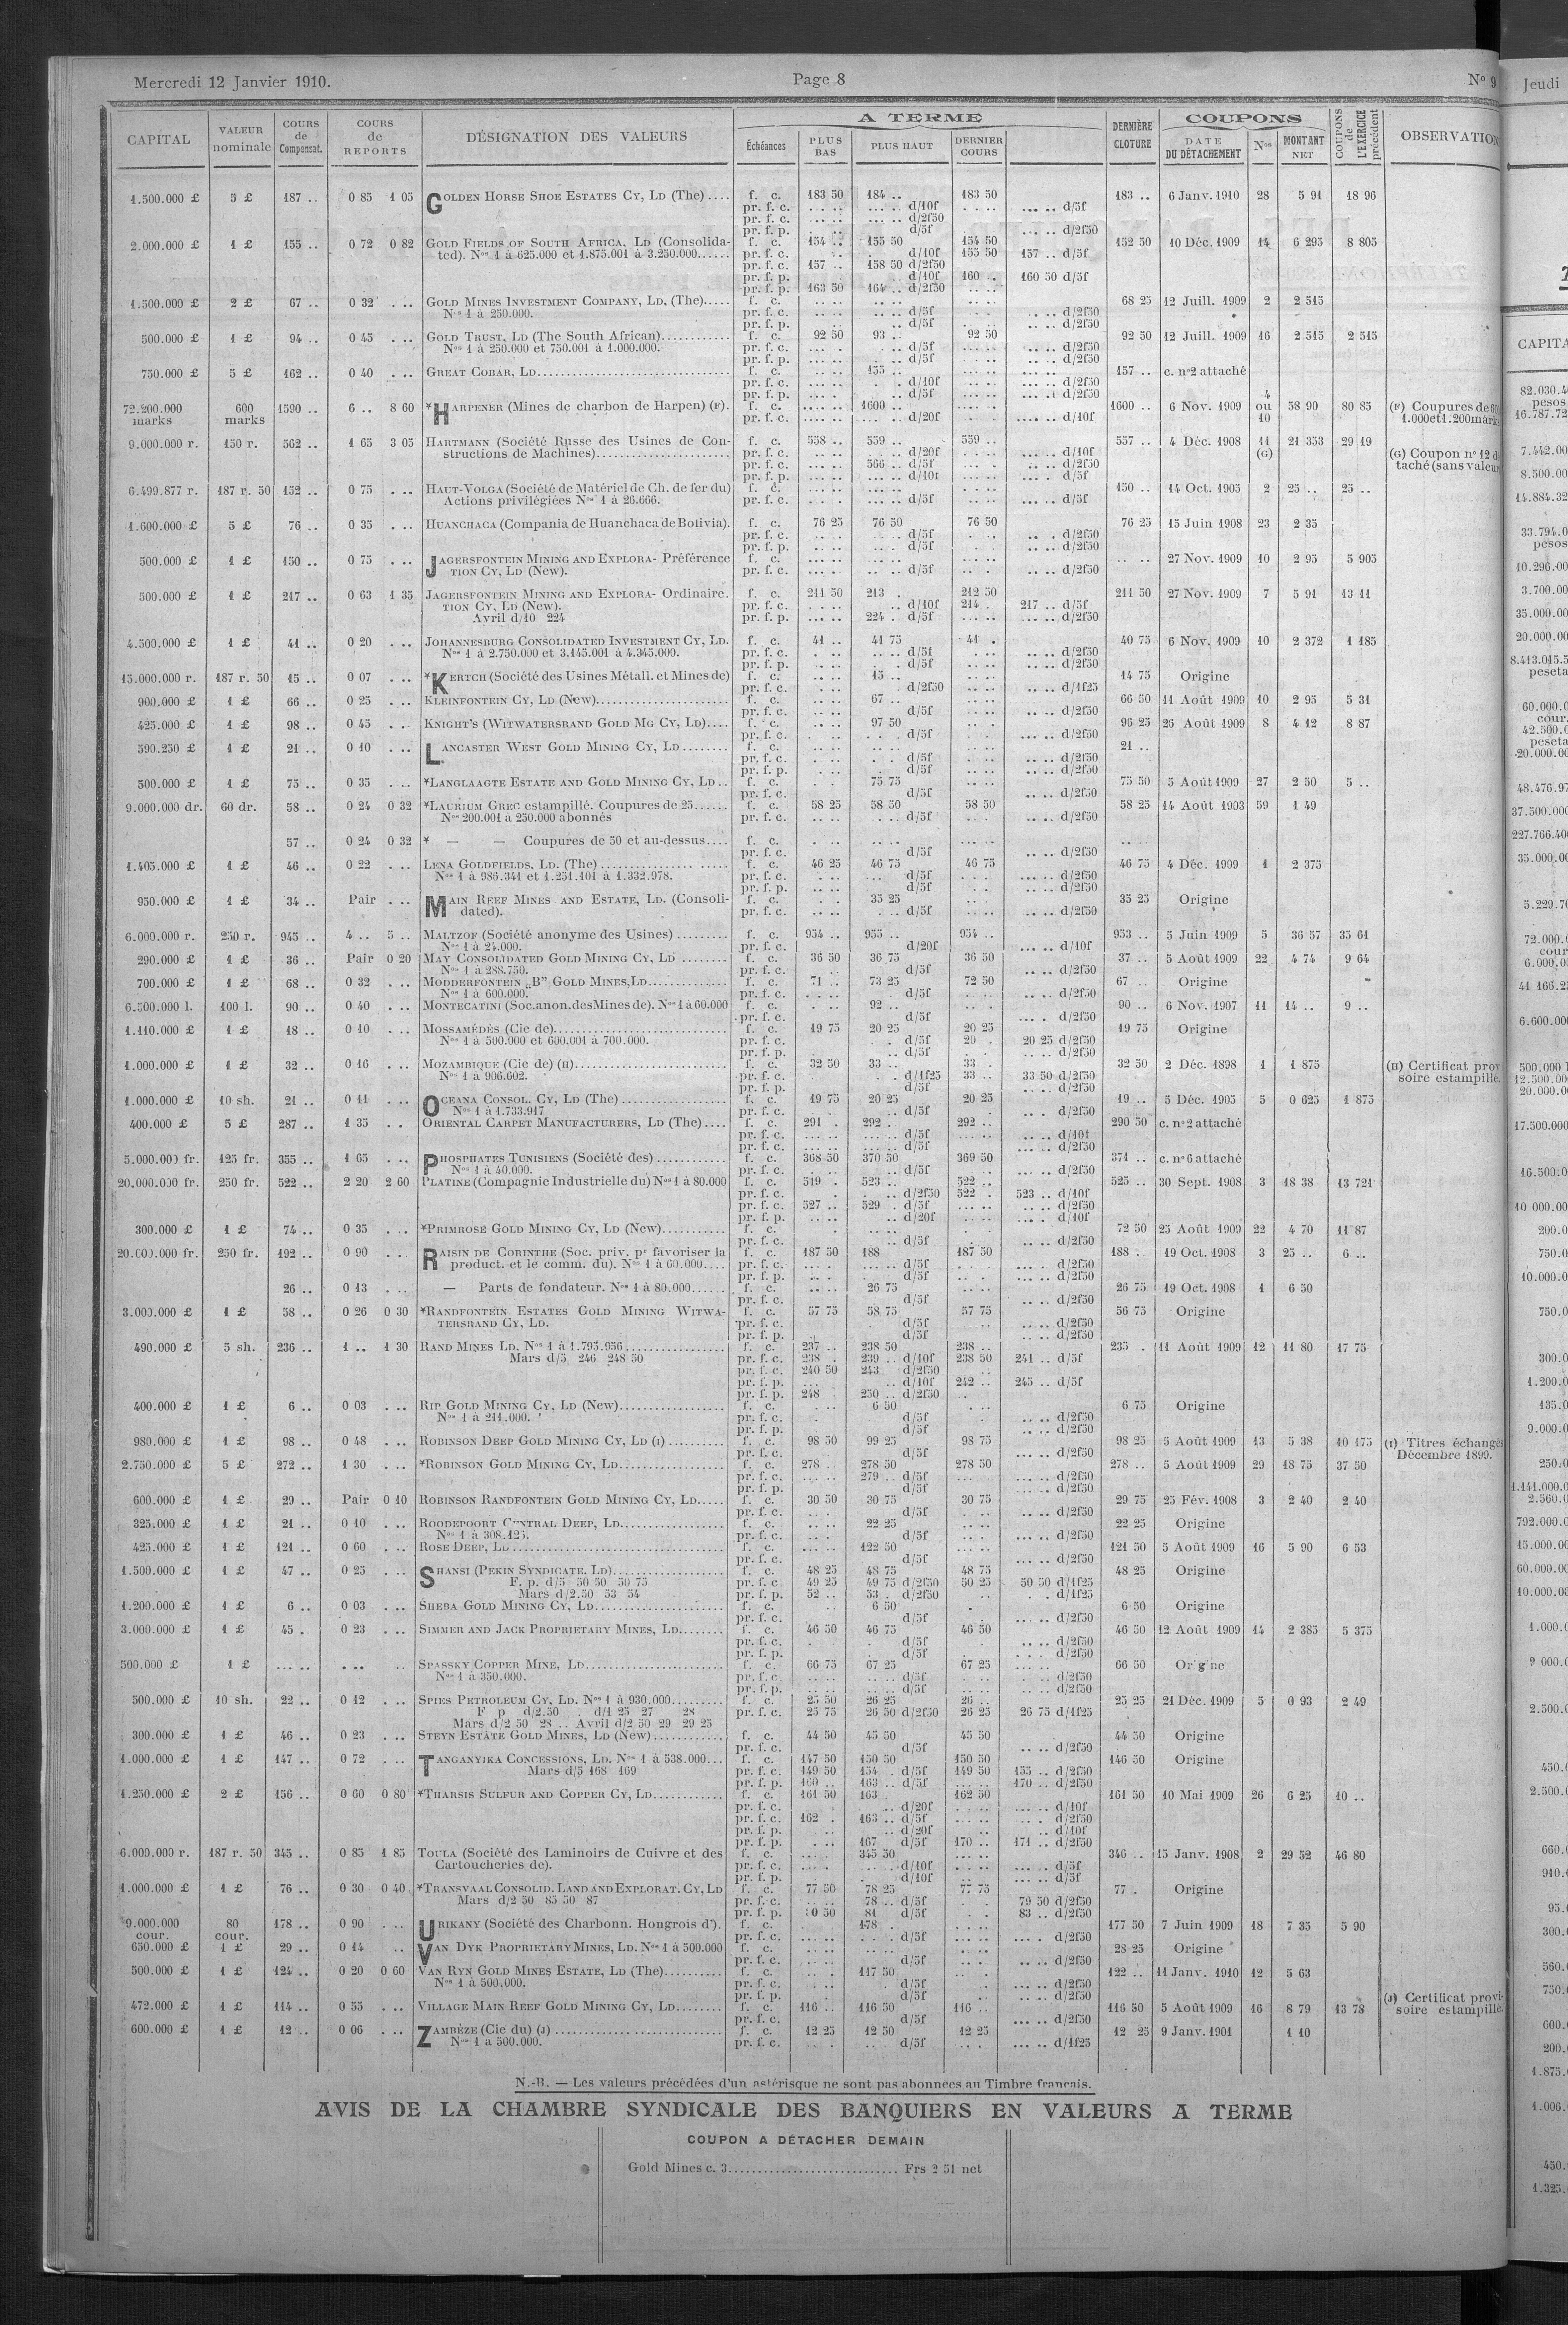 Mercredi 12 Janvier 1910. Page 8 N° 9
CAPITAL VALEUR nominale COURS de Compensat. COURS de REPORTS DÉSIGNATION DES VALEURS A TERME Échéances PLUS BAS PLUS HAUT DERNIER COURS DERNIÈRE CLOTURE COUPONS DATE DU DÉTACHEMENT Nos MONTANT NET COUPONS de L'EXERCICE précédent
1.500.000 £ 5 £ 187 .. 0 85 1 05 GOLDEN HORSE SHOE ESTATES CY, LD (The).... f. c. 183 50 184 .. 183 50 183 .. 6 Janv. 1910 28 5 91 18 96
pr. f. c. d/10f d/5f
pr. f. c. d/2f50
pr. f. p. d/5f d/2f50
2.000.000 £ 1 £ 155 .. 0 72 0 82 GOLD FIELDS OF SOUTH AFRICA, LD (Consolida- f. c. 154 .. 155 50 154 50 152 50 10 Déc. 1909 14 6 295 8 805
ted). Nos 1 à 625.000 et 1.875.001 à 3.250.000...... pr. f. c. d/10f 155 50 157 .. d/5f
pr. f. c. 157 .. 158 50 d/2f50
pr. f. p. d/10f 160 .. 160 50 d/5f
pr. f. p. 163 50 164 .. d/2f50
1.500.000 £ 2 £ 67 .. 0 32 GOLD MINES INVESTMENT COMPANY, LD, (The)..... f. c. 68 25 12 Juill. 1909 2 2 515
Nos 1 à 250.000. pr. f. c. d/5f d/2f50
pr. f. p. d/5f d/2f50
500.000 £ 1 £ 94 .. 0 45 GOLD TRUST, LD (The South African)............ f. c. 92 50 93 .. 92 50 92 50 12 Juill. 1909 16 2 515 2 515
Nos 1 à 250.000 et 750.001 à 1.000.000. pr. f. c. d/5f d/2f50
pr. f. p. d/5f d/2f50
750.000 £ 5 £ 162 .. 0 40 GREAT COBAR, LD................................ f. c. 155 .. 157 .. c. n° 2 attaché
pr. f. c. d/10f d/2f50
pr. f. p. d/5f d/2f50
72.200.000 marks 600 marks 1590 .. 6 .. 8 60 *HARPENER (Mines de charbon de Harpen) (F). f. c. 1600 .. 1600 .. 6 Nov. 1909 4 ou 10 58 90 80 85 (F) Coupures de
pr. f. c. d/20f d/10f 1.000 et 1.200 marks
9.000.000 r. 150 r. 562 .. 1 65 3 05 HARTMANN (Société Russe des Usines de Con- f. c. 558 .. 559 .. 559 .. 557 .. 4 Déc. 1908 11 (G) 21 353 29 19
structions de Machines)...................... pr. f. c. d/20f d/10f (G) Coupon n° 12
pr. f. c. 566 .. d/5f d/2f50 taché (sans valeur
pr. f. p. d/10f d/5f
6.499.877 r. 187 r. 50 152 .. 0 75 HAUT-VOLGA (Société de Matériel de Ch. de fer du) f. c. 150 .. 14 Oct. 1905 2 25 .. 25 ..
Actions privilégiées Nos 1 à 26.666. pr. f. c. d/5f d/5f
1.600.000 £ 5 £ 76 .. 0 35 HUANCHACA (Compania de Huanchaca de Bolivia). f. c. 76 25 76 50 76 50 76 25 15 Juin 1908 23 2 35
pr. f. c. d/5f d/2f50
pr. f. p. d/5f d/2f50
500.000 £ 1 £ 150 .. 0 75 JAGERSFONTEIN MINING AND EXPLORA- Préférence f. c. 27 Nov. 1909 10 2 95 5 905
TION CY, LD (New). pr. f. c. d/5f d/2f50
500.000 £ 1 £ 217 .. 0 63 1 35 JAGERSFONTEIN MINING AND EXPLORA- Ordinaire. f. c. 211 50 213 . 212 50 211 50 27 Nov. 1909 7 5 91 13 11
TION CY, LD (New). pr. f. c. d/10f 214 . 217 .. d/5f
Avril d/10 224 pr. f. p. 224 . d/5f d/2f50
4.500.000 £ 1 £ 41 .. 0 20 JOHANNESBURG CONSOLIDATED INVESTMENT CY, LD. f. c. 41 .. 41 75 41 . 40 75 6 Nov. 1909 10 2 372 1 185
Nos 1 à 2.750.000 et 3.145.001 à 4.345.000. pr. f. c. d/5f d/2f50
pr. f. p. d/5f d/2f50
15.000.000 r. 187 r. 50 15 .. 0 07 *KERTCH (Société des Usines Métall. et Mines de) f. c. 15 .. 14 75 Origine
pr. f. c. d/2f50 d/1f25
900.000 £ 1 £ 66 .. 0 25 KLEINFONTEIN CY, LD (New)...................... f. c. 67 .. 66 50 11 Août 1909 10 2 95 5 31
pr. f. c. d/5f d/2f50
425.000 £ 1 £ 98 .. 0 45 KNIGHT'S (WITWATERSRAND GOLD MG CY, LD).... f. c. 97 50 96 25 26 Août 1909 8 4 12 8 87
pr. f. c. d/5f d/2f50
590.250 £ 1 £ 21 .. 0 10 LANCASTER WEST GOLD MINING CY, LD........ f. c. 21 ..
pr. f. c. d/5f d/2f50
pr. f. p. d/5f d/2f50
500.000 £ 1 £ 75 .. 0 35 *LANGLAAGTE ESTATE AND GOLD MINING CY, LD.. f. c. 75 75 75 50 5 Août 1909 27 2 50 5 ..
pr. f. c. d/5f d/2f50
9.000.000 dr. 60 dr. 58 .. 0 24 0 32 *LAURIUM GREC estampillé. Coupures de 25...... f. c. 58 25 58 50 58 50 58 25 14 Août 1903 59 1 49
Nos 200.001 à 250.000 abonnés pr. f. c. d/5f d/2f50
57 .. 0 24 0 32 * — — Coupures de 50 et au-dessus.... f. c.
pr. f. c. d/5f d/2f50
1.405.000 £ 1 £ 46 .. 0 22 LENA GOLDFIELDS, LD. (The) .............. f. c. 46 25 46 75 46 75 46 75 4 Déc. 1909 1 2 375
Nos 1 à 986.341 et 1.251.101 à 1.332.978. pr. f. c. d/5f d/2f50
pr. f. p. d/5f d/2f50
950.000 £ 1 £ 34 .. Pair MAIN REEF MINES AND ESTATE, LD. (Consoli- f. c. 35 25 35 25 Origine
dated). pr. f. c. d/5f d/2f50
6.000.000 r. 250 r. 945 .. 4 .. 5 .. MALTZOF (Société anonyme des Usines) ......... f. c. 954 .. 955 .. 954 .. 953 .. 5 Juin 1909 5 36 57 35 61
Nos 1 à 24.000. pr. f. c. d/20f d/10f
290.000 £ 1 £ 36 .. Pair 0 20 MAY CONSOLIDATED GOLD MINING CY, LD ........ f. c. 36 50 36 75 36 50 37 .. 5 Août 1909 22 4 74 9 64
Nos 1 à 288.750. pr. f. c. d/5f d/2f50
700.000 £ 1 £ 68 .. 0 32 MODDERFONTEIN „B" GOLD MINES, LD............. f. c. 71 .. 73 25 72 50 67 .. Origine
Nos 1 à 600.000. pr. f. c. d/5f d/2f50
6.500.000 l. 100 l. 90 .. 0 40 MONTECATINI (Soc. anon. des Mines de). Nos 1 à 60.000 f. c. 92 .. 90 .. 6 Nov. 1907 11 14 .. 9 ..
pr. f. c. d/5f d/2f50
1.110.000 £ 1 £ 18 .. 0 10 MOSSAMÉDÈS (Cie de)............................ f. c. 19 75 20 25 20 25 19 75 Origine
Nos 1 à 500.000 et 600.001 à 700.000. pr. f. c. d/5f 20 . 20 25 d/2f50
pr. f. p. d/5f d/2f50
1.000.000 £ 1 £ 32 .. 0 16 MOZAMBIQUE (Cie de) (H)......................... f. c. 32 50 33 .. 33 . 32 50 2 Déc. 1898 1 1 875 (H) Certificat provi
Nos 1 à 906.602. pr. f. c. d/1f25 33 .. 33 50 d/2f50 soire estampillé.
pr. f. p. d/5f d/2f50
1.000.000 £ 10 sh. 21 .. 0 11 OCEANA CONSOL. CY, LD (The) ................. f. c. 19 75 20 25 20 25 19 .. 5 Déc. 1905 5 0 625 1 875
Nos 1 à 1.733.917 pr. f. c. d/5f d/2f50
400.000 £ 5 £ 287 .. 1 35 ORIENTAL CARPET MANUFACTURERS, LD (The).... f. c. 291 . 292 . 292 .. 290 50 c. n° 2 attaché
pr. f. c. d/5f d/10f
pr. f. c. d/5f d/2f50
5.000.000 fr. 125 fr. 355 .. 1 65 PHOSPHATES TUNISIENS (Société des) ........... f. c. 368 50 370 50 369 50 371 .. c. n° 6 attaché
Nos 1 à 40.000. pr. f. c. d/5f d/2f50
20.000.000 fr. 250 fr. 522 .. 2 20 2 60 PLATINE (Compagnie Industrielle du) Nos 1 à 80.000 f. c. 519 . 523 .. 522 .. 525 .. 30 Sept. 1908 3 18 38 13 721
pr. f. c. d/2f50 522 . 523 .. d/10f
pr. f. c. 527 .. 529 . d/5f d/2f50
pr. f. p. d/20f d/10f
300.000 £ 1 £ 74 .. 0 35 *PRIMROSE GOLD MINING CY, LD (New)........... f. c. 72 50 25 Août 1909 22 4 70 11 87
pr. f. c. d/5f d/2f50
20.000.000 fr. 250 fr. 192 .. 0 90 RAISIN DE CORINTHE (Soc. priv. pr favoriser la f. c. 187 50 188 187 50 188 .. 19 Oct. 1908 3 25 .. 6 ..
product. et le comm. du). Nos 1 à 60.000.... pr. f. c. d/5f d/2f50
pr. f. p. d/5f d/2f50
26 .. 0 13 — Parts de fondateur. Nos 1 à 80.000...... f. c. 26 75 26 75 19 Oct. 1908 1 6 50
pr. f. c. d/5f d/2f50
3.000.000 £ 1 £ 58 .. 0 26 0 30 *RANDFONTEIN ESTATES GOLD MINING WITWA- f. c. 57 75 58 75 57 75 56 75 Origine
TERSRAND CY, LD. pr. f. c. d/5f d/2f50
pr. f. p. d/5f d/2f50
490.000 £ 5 sh. 236 .. 1 .. 1 30 RAND MINES LD. Nos 1 à 1.795.956................. f. c. 237 .. 238 50 238 .. 235 . 11 Août 1909 12 11 80 17 75
Mars d/5 246 248 50 pr. f. c. 238 . 239 .. d/10f 238 50 241 .. d/5f
pr. f. c. 240 50 243 d/2f50
pr. f. p. d/10f 242 .. 245 .. d/5f
pr. f. p. 248 250 .. d/2f50
400.000 £ 1 £ 6 .. 0 03 RIP GOLD MINING CY, LD (New).................. f. c. 6 50 6 75 Origine
Nos 1 à 211.000. pr. f. c. d/5f d/2f50
pr. f. p. d/5f d/2f50
980.000 £ 1 £ 98 .. 0 48 ROBINSON DEEP GOLD MINING CY, LD (I) ......... f. c. 98 50 99 25 98 75 98 25 5 Août 1909 13 5 38 10 175 (I) Titres échangés
pr. f. c. d/5f d/2f50 Décembre 1899.
2.750.000 £ 5 £ 272 .. 1 30 *ROBINSON GOLD MINING CY, LD.................. f. c. 278 . 278 50 278 50 278 .. 5 Août 1909 29 18 75 37 50
pr. f. c. 279 .. d/5f d/2f50
pr. f. p. d/5f d/2f50
600.000 £ 1 £ 29 .. Pair 0 10 ROBINSON RANDFONTEIN GOLD MINING CY, LD..... f. c. 30 50 30 75 30 75 29 75 25 Fév. 1908 3 2 40 2 40
pr. f. c. d/5f d/2f50
325.000 £ 1 £ 21 .. 0 10 ROODEPOORT CENTRAL DEEP, LD................. f. c. 22 25 22 25 Origine
Nos 1 à 308.125. pr. f. c. d/5f d/2f50
425.000 £ 1 £ 121 .. 0 60 ROSE DEEP, LD ................................ f. c. 122 50 121 50 5 Août 1909 16 5 90 6 53
pr. f. c. d/5f d/2f50
1.500.000 £ 1 £ 47 .. 0 25 SHANSI (PEKIN SYNDICATE, LD)................. f. c. 48 25 48 75 48 75 48 25 Origine
F. p. d/5 50 50 50 75 pr. f. c. 49 25 49 75 d/2f50 50 25 50 50 d/1f25
Mars d/2.50 53 54 pr. f. p. 52 .. 53 . d/2f50 d/1f25
1.200.000 £ 1 £ 6 .. 0 03 SHEBA GOLD MINING CY, LD..................... f. c. 6 50 6 50 Origine
pr. f. c. d/5f d/2f50
3.000.000 £ 1 £ 45 . 0 23 SIMMER AND JACK PROPRIETARY MINES, LD....... f. c. 46 50 46 75 46 50 46 50 12 Août 1909 14 2 385 5 375
pr. f. c. d/5f d/2f50
pr. f. p. d/5f d/2f50
500.000 £ 1 £ SPASSKY COPPER MINE, LD...................... f. c. 66 75 67 25 67 25 66 50 Or g ne
Nos 1 à 350.000. pr. f. c. d/5f d/2f50
pr. f. p. d/5f d/2f50
500.000 £ 10 sh. 22 .. 0 12 SPIES PETROLEUM CY, LD. Nos 1 à 930.000......... f. c. 25 50 26 25 26 .. 25 25 21 Déc. 1909 5 0 93 2 49
F p d/2.50 d/1 25 27 28 pr. f. c. 25 75 26 50 d/2f50 26 25 26 75 d/1f25
Mars d/2 50 28 .. Avril d/2 50 29 29 25
300.000 £ 1 £ 46 .. 0 23 STEYN ESTATE GOLD MINES, LD (New)............ f. c. 44 50 45 50 45 50 44 50 Origine
pr. f. c. d/5f d/2f50
1.000.000 £ 1 £ 147 .. 0 72 TANGANYIKA CONCESSIONS, LD. Nos 1 à 538.000... f. c. 147 50 150 50 150 50 146 50 Origine
Mars d/5 168 169 pr. f. c. 149 50 154 . d/5f 149 50 155 .. d/2f50
pr. f. p. 160 .. 163 .. d/5f 170 .. d/2f50
1.250.000 £ 2 £ 156 .. 0 60 0 80 *THARSIS SULFUR AND COPPER CY, LD............ f. c. 161 50 163 162 50 161 50 10 Mai 1909 26 6 25 10 ..
pr. f. c. d/20f d/10f
pr. f. c. 162 . 163 .. d/5f d/2f50
pr. f. p. d/20f d/10f
pr. f. p. 167 d/5f 170 .. 171 .. d/2f50
6.000.000 r. 187 r. 50 345 .. 0 85 1 85 TOULA (Société des Laminoirs de Cuivre et des f. c. 345 50 346 .. 15 Janv. 1908 2 29 52 46 80
Cartoucheries de). pr. f. c. d/10f d/5f
pr. f. p. d/10f d/5f
1.000.000 £ 1 £ 76 .. 0 30 0 40 *TRANSVAAL CONSOLID. LAND AND EXPLORAT. CY, LD f. c. 77 50 78 25 77 75 77 . Origine
Mars d/2 50 85 50 87 pr. f. c. 78 .. d/5f 79 50 d/2f50
pr. f. p. 0 50 81 d/5f 83 .. d/2f50
9.000.000 cour. 80 cour. 178 .. 0 90 URIKANY (Société des Charbonn. Hongrois d'). f. c. 178 . 177 50 7 Juin 1909 18 7 35 5 90
pr. f. c. d/5f d/2f50
650.000 £ 1 £ 29 .. 0 14 VAN DYK PROPRIETARY MINES, LD. Nos 1 à 500.000 f. c. 28 25 Origine
pr. f. c. d/5f d/2f50
500.000 £ 1 £ 124 .. 0 20 0 60 VAN RYN GOLD MINES ESTATE, LD (The).......... f. c. 117 50 122 .. 11 Janv. 1910 12 5 63
Nos 1 à 500.000. pr. f. c. d/5f d/2f50
pr. f. p. d/5f d/2f50
472.000 £ 1 £ 114 .. 0 55 VILLAGE MAIN REEF GOLD MINING CY, LD........ f. c. 116 .. 116 50 116 .. 116 50 5 Août 1909 16 8 79 13 78 (J) Certificat provi-
pr. f. c. d/5f d/2f50 soire estampillé.
600.000 £ 1 £ 12 .. 0 06 ZAMBÈZE (Cie du) (J) ............................ f. c. 12 25 12 50 12 25 12 25 9 Janv. 1901 1 10
Nos 1 à 500.000. pr. f. c. d/5f d/1f25
N.-B. — Les valeurs précédées d'un astérisque ne sont pas abonnées au Timbre français.
AVIS DE LA CHAMBRE SYNDICALE DES BANQUIERS EN VALEURS A TERME
COUPON A DÉTACHER DEMAIN
Gold Mines c. 3............................. Frs 2 51 net
Jeudi